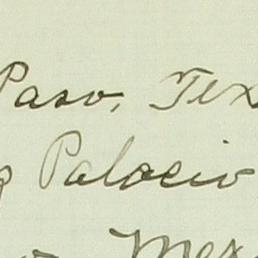 Paso, Tex
g Palacio
Mex